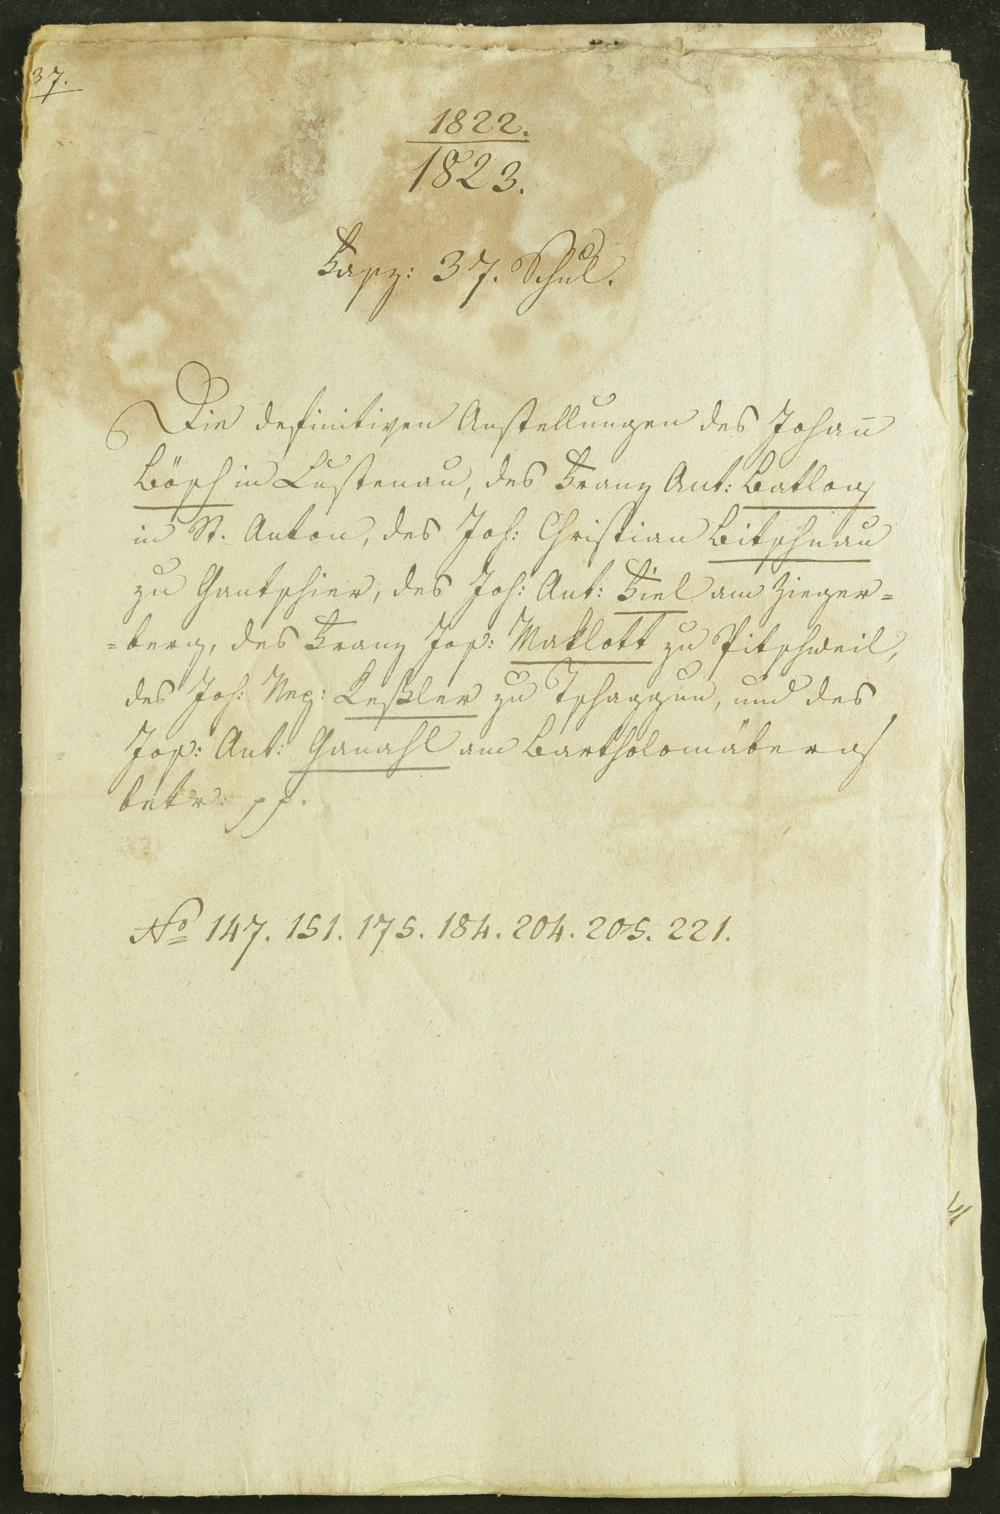 37.
1822.
1823.
Fasz: 37. Schul.
Die definitiven Anstellungen des Johan̄
Bösch in Lustenau, des Franz Ant: Batlog
in St. Anton, des Joh: Christian Bitschnau
zu Gantschier, des Joh: Ant: Fiel am Zieger=
=berg, des Franz Jos: Maklott zu Vitschweil,
des Joh: Nep: Keßler zu Tschaggun, und des
Jos: Ant: Ganahl am Bartholomäberg
betr:
No 147. 151. 175. 184. 204. 205. 221.